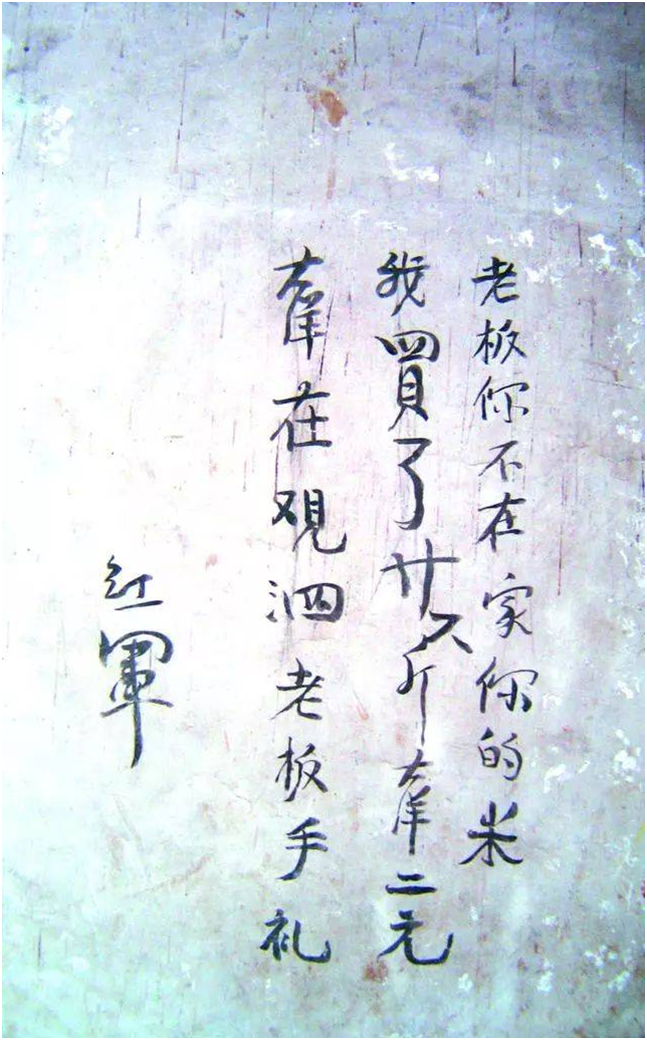 老板你不在家你的米
我買了廿六斤大洋二元
大洋在观泗老板手礼
红軍